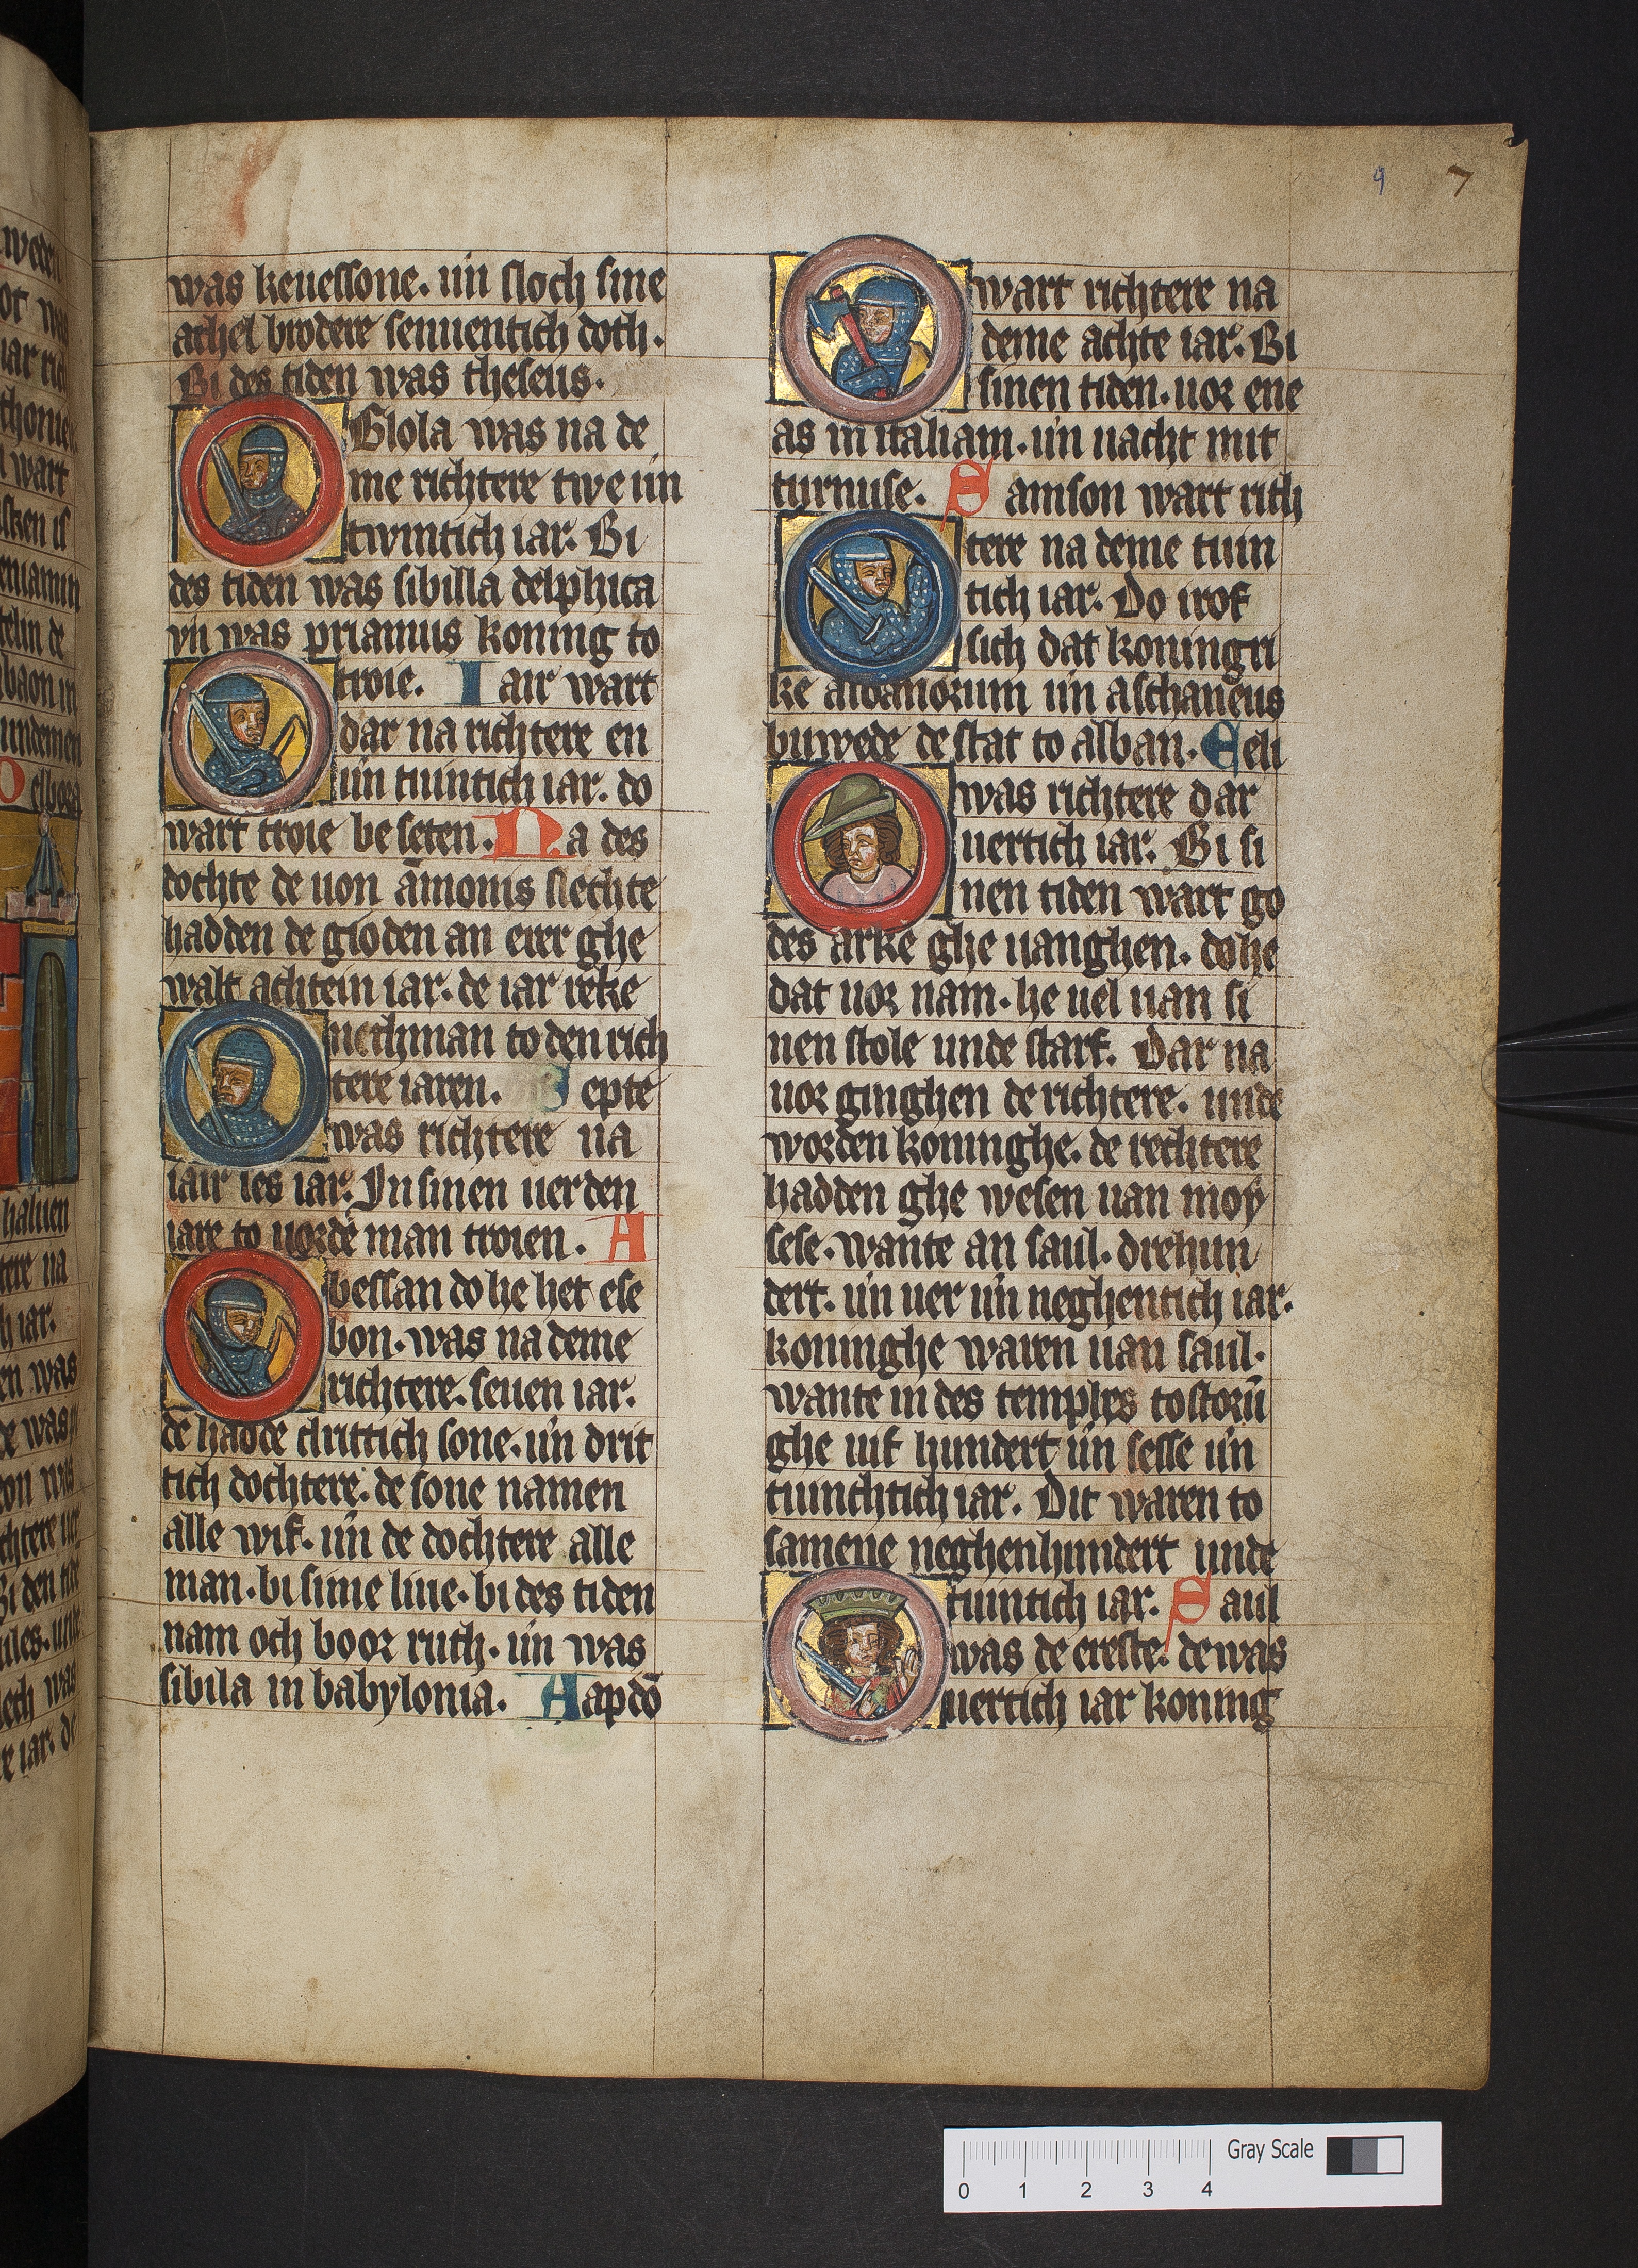 was keuessone. uñ sloch sine
athel brodere seuuentich doth.
Bi des tiden was theseus.
Glola was na de
me richtere twe uñ
twintich iar. Bi
des tiden was sibilla delphica
vñ was priamus koning to
troie. Iair wart
dar na richtere en
uñ tuintich iar. do
wart troie be seten. Na des
dochte de uon āmonis slechte
hadden de gioden an erer ghe
walt achtein iar. de iar reke
nethman to den rich
tere iaren. Septe
was richtere na
iair ses iar. In sinen uerden
iare to uorde man troien. A
bessan do he het ese
bon. was na deme
richtere. seuen iar.
de hadde drittich sone. uñ drit
tich dochtere. de sone namen
alle wif. uñ de dochtere alle
man. bi sime liue. bi des tiden
nam och booz ruth. uñ was
sibila in babylonia. Aapdō
wart richtere na
deme achte iar. Bi
sinen tiden. uor ene
as in italiam. uñ uacht mit
turnuse. Samson wart rich
tere na deme tuin
tich iar. Do irof
sich dat koningri
ke albanorum uñ aschaneus
buwede de stat to alban. Eeli
was richtere dar
uertich iar. Bi si
nen tiden wart go
des arke ghe uanghen. do he
dat uor nam. he uel uan si
nen stole unde starf. Dar na
uor ginghen de richtere. unde
worden koninghe. de rechtere
hadden ghe wesen uan moy
sese. wante an saul. drehun
dert. uñ uer uñ neghentich iar.
koninghe waren uan saul.
wante in des temples to storū
ghe uif hundert uñ sesse uñ
tuinchtich iar. Dit waren to
samene neghenhundert unde
tuintich iar. Saul
was de ereste. de was
uertich iar koning
9 7
Gray Scale
0 1 2 3 4